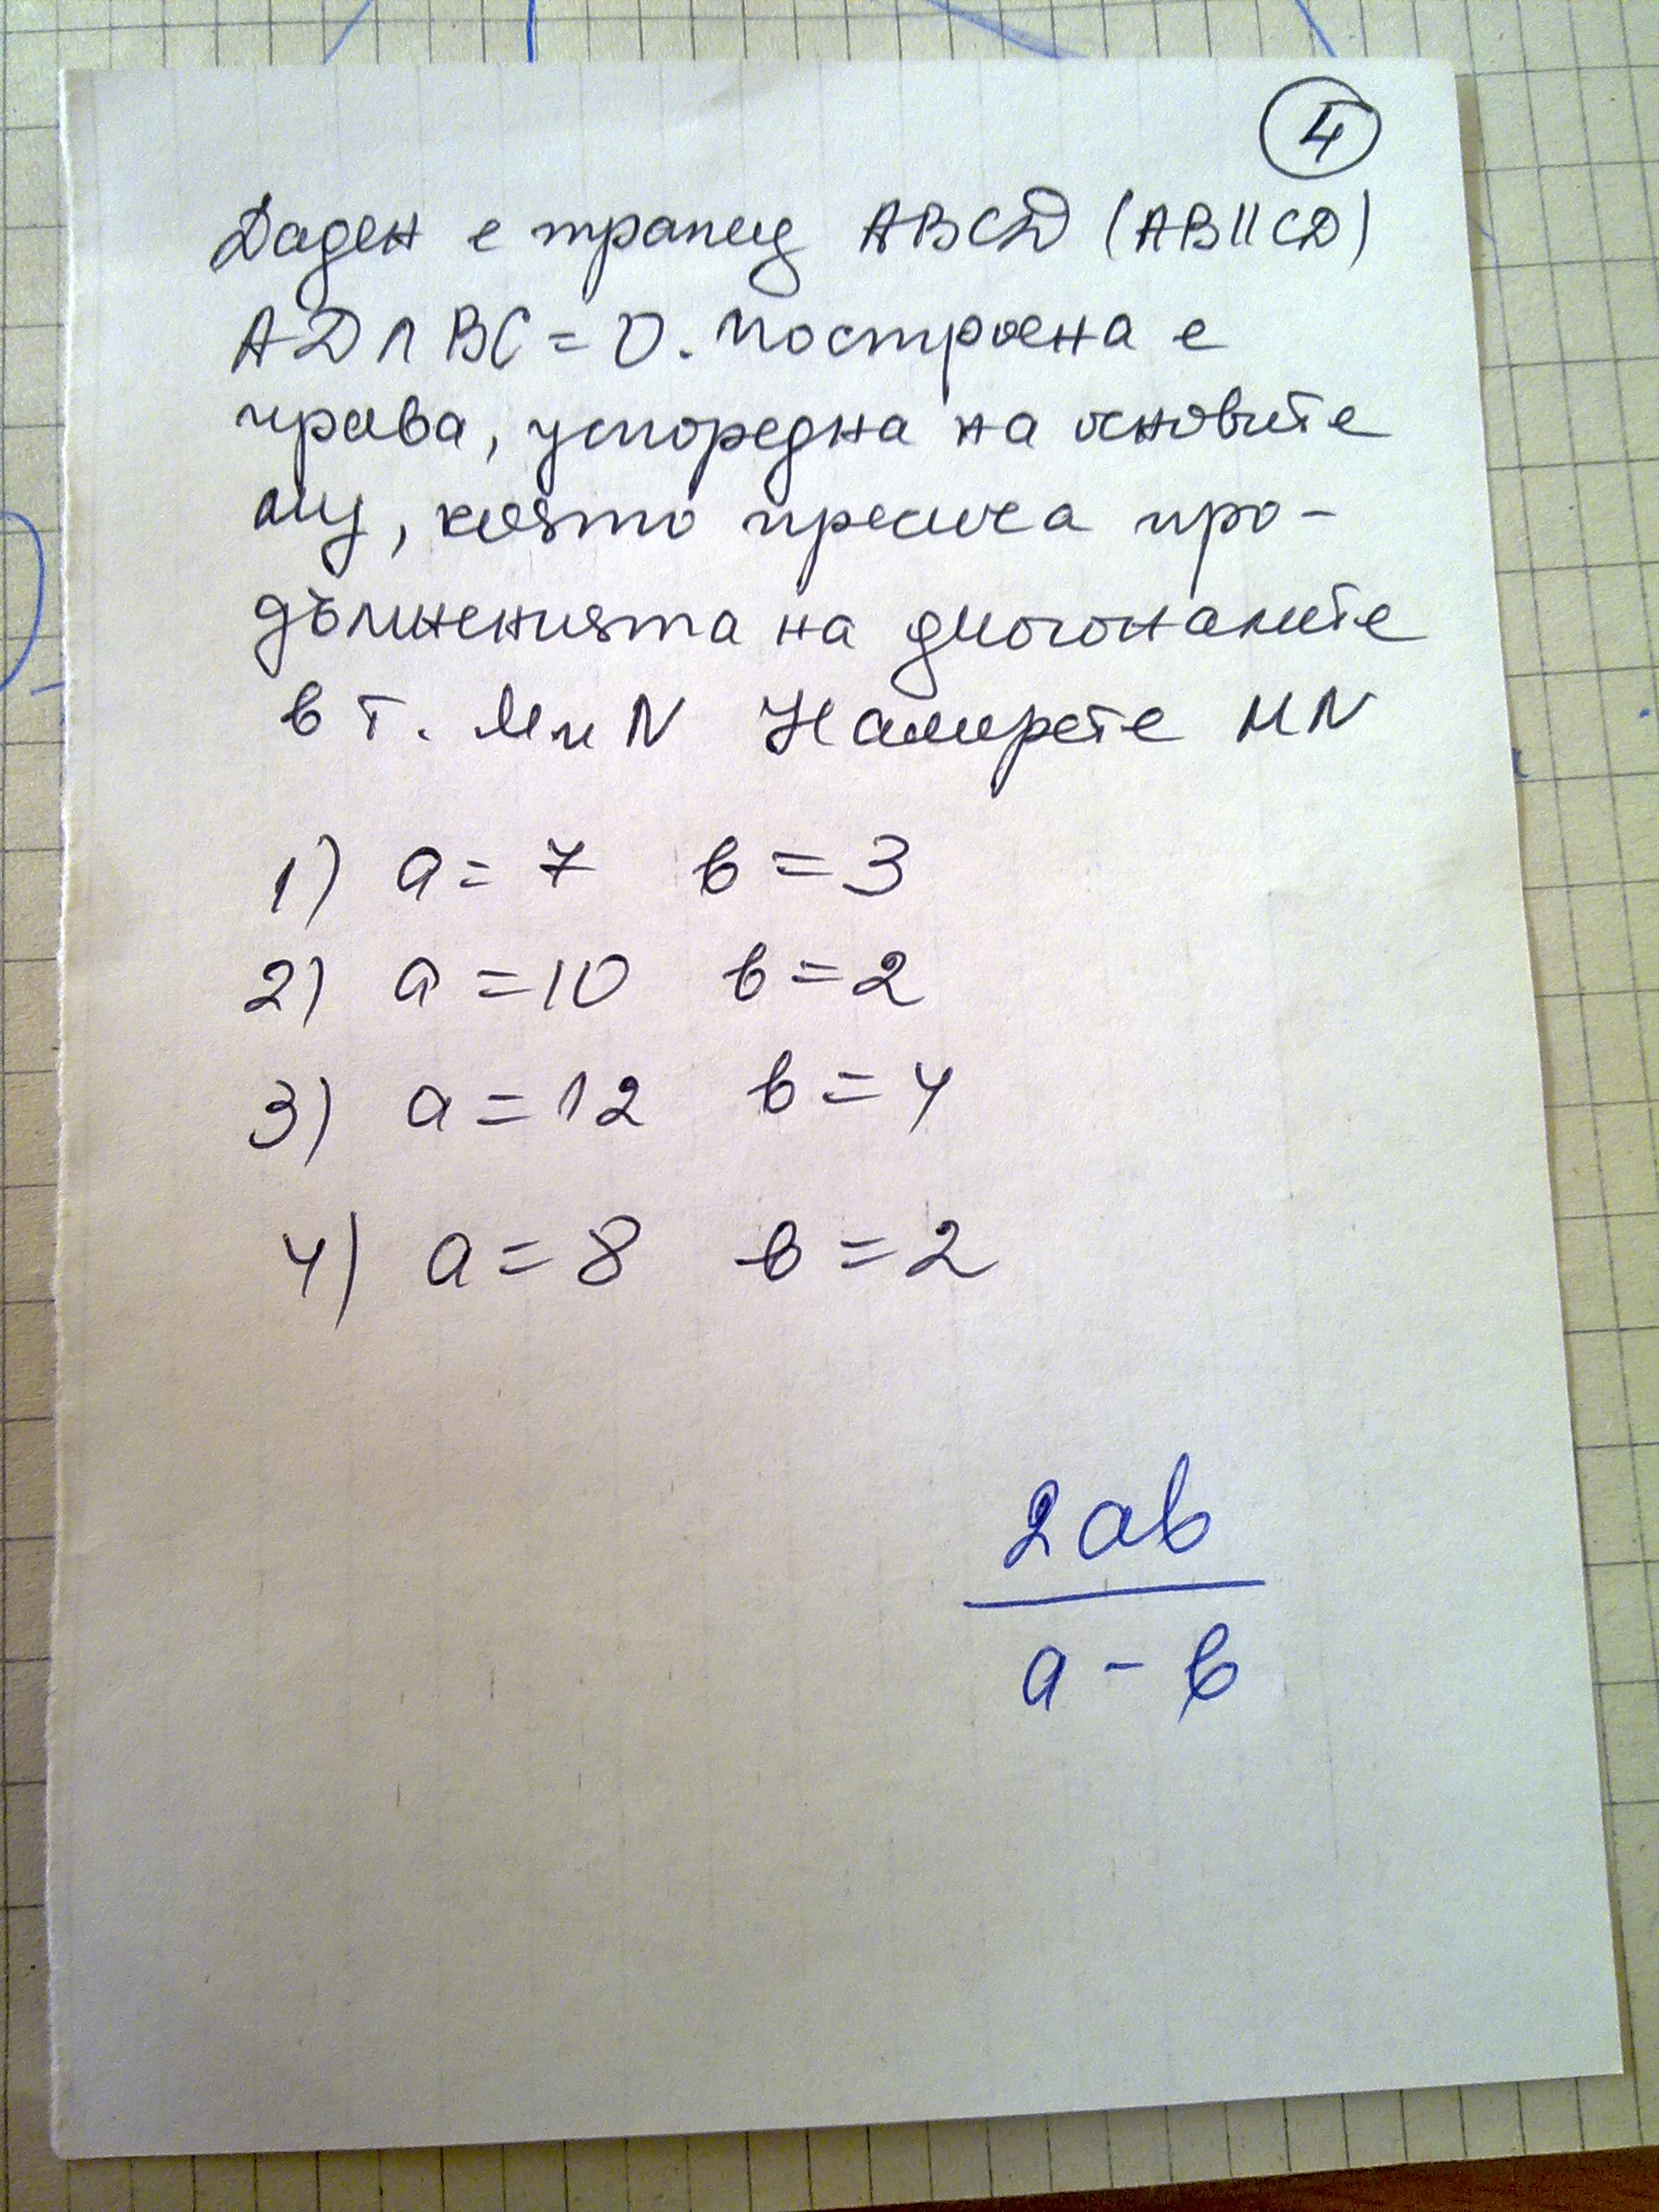 4
Даден е трапец ABCD (AB||CD)
AD∩BC=O. Построена е
права, успоредна на основите
му, която пресича про-
дълженията на диагоналите
в т. M и N Намерете MN
1) a=7 b=3
2) a=10 b=2
3) a=12 b=4
4) a=8 b=2
2ab
a-b